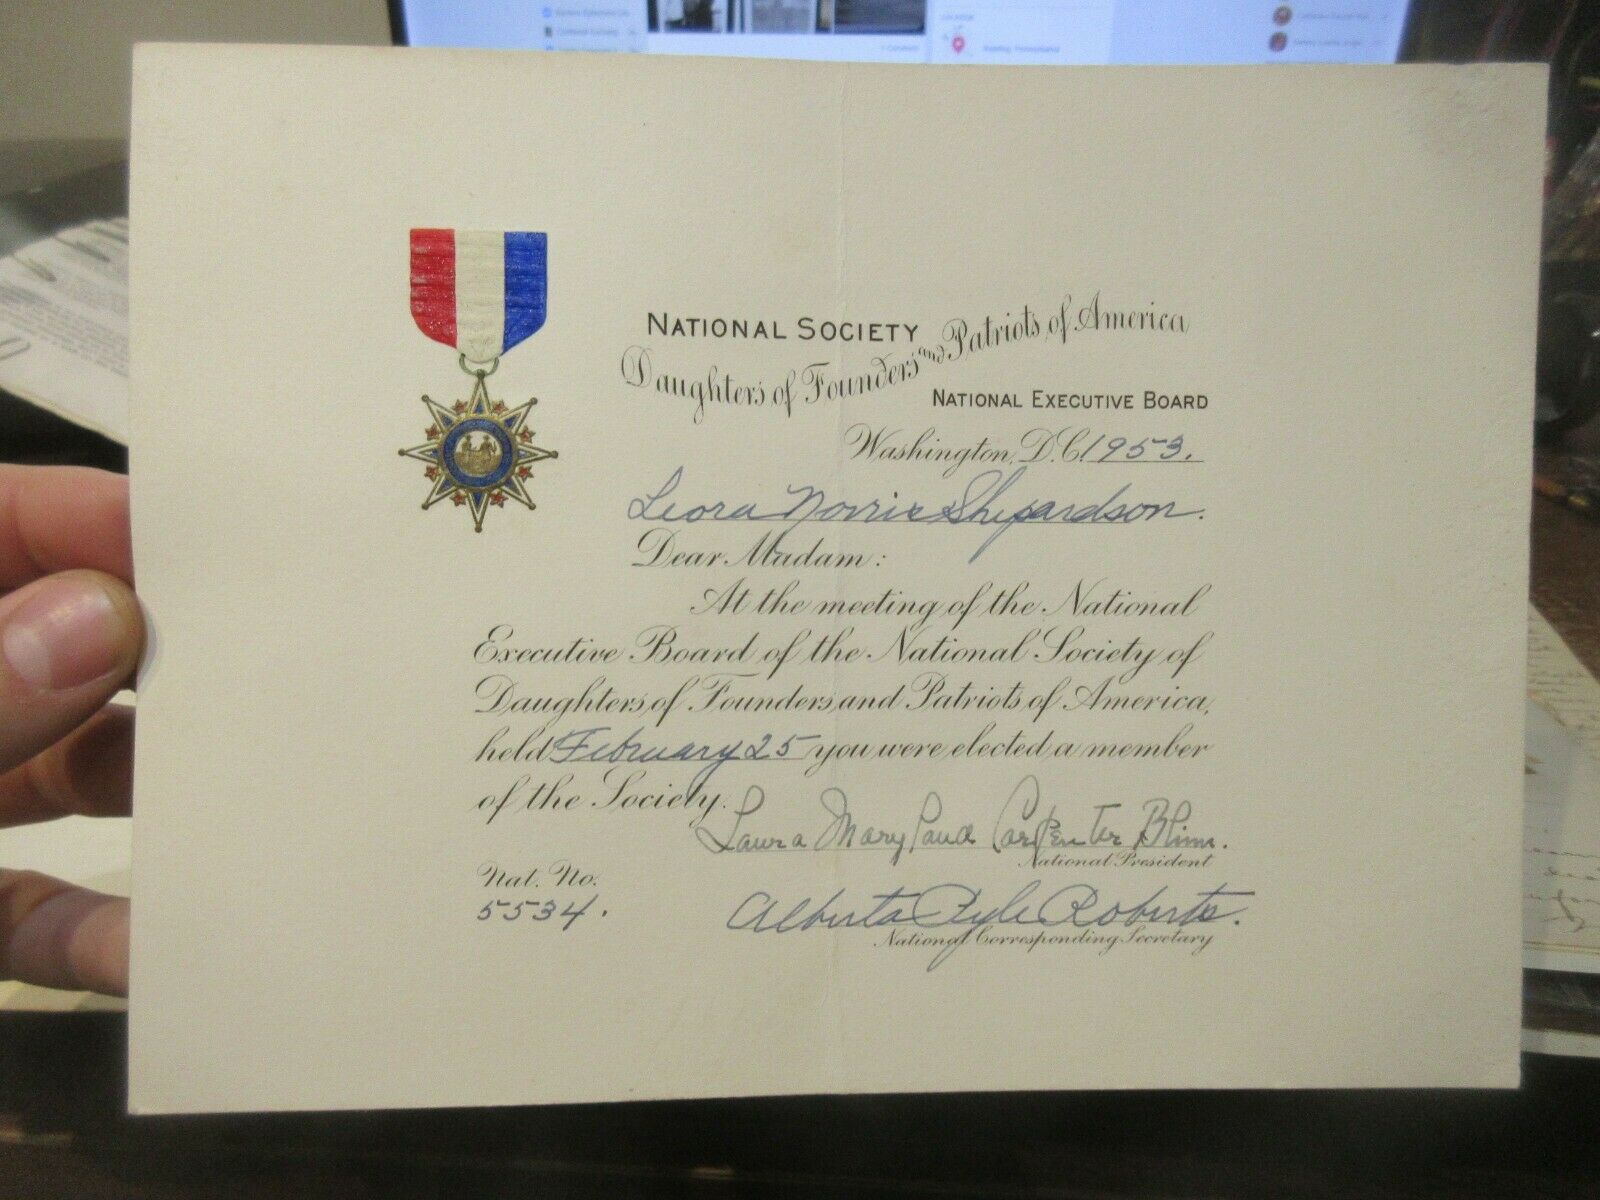 NATIONAL SOCIETY
Daughters of Founders and Patriots of America
NATIONAL EXECUTIVE BOARD
Washington, D.C. 1953.
Leora Norris Shepardson.
Dear Madam:
At the meeting of the National
Executive Board of the National Society of
Daughters of Founders and Patriots of America,
held February 25 you were elected a member
of the Society.
Laura Mary Carpenter
National President
Nat. No.
5534.
Alberta Pyle Roberts.
National Corresponding Secretary